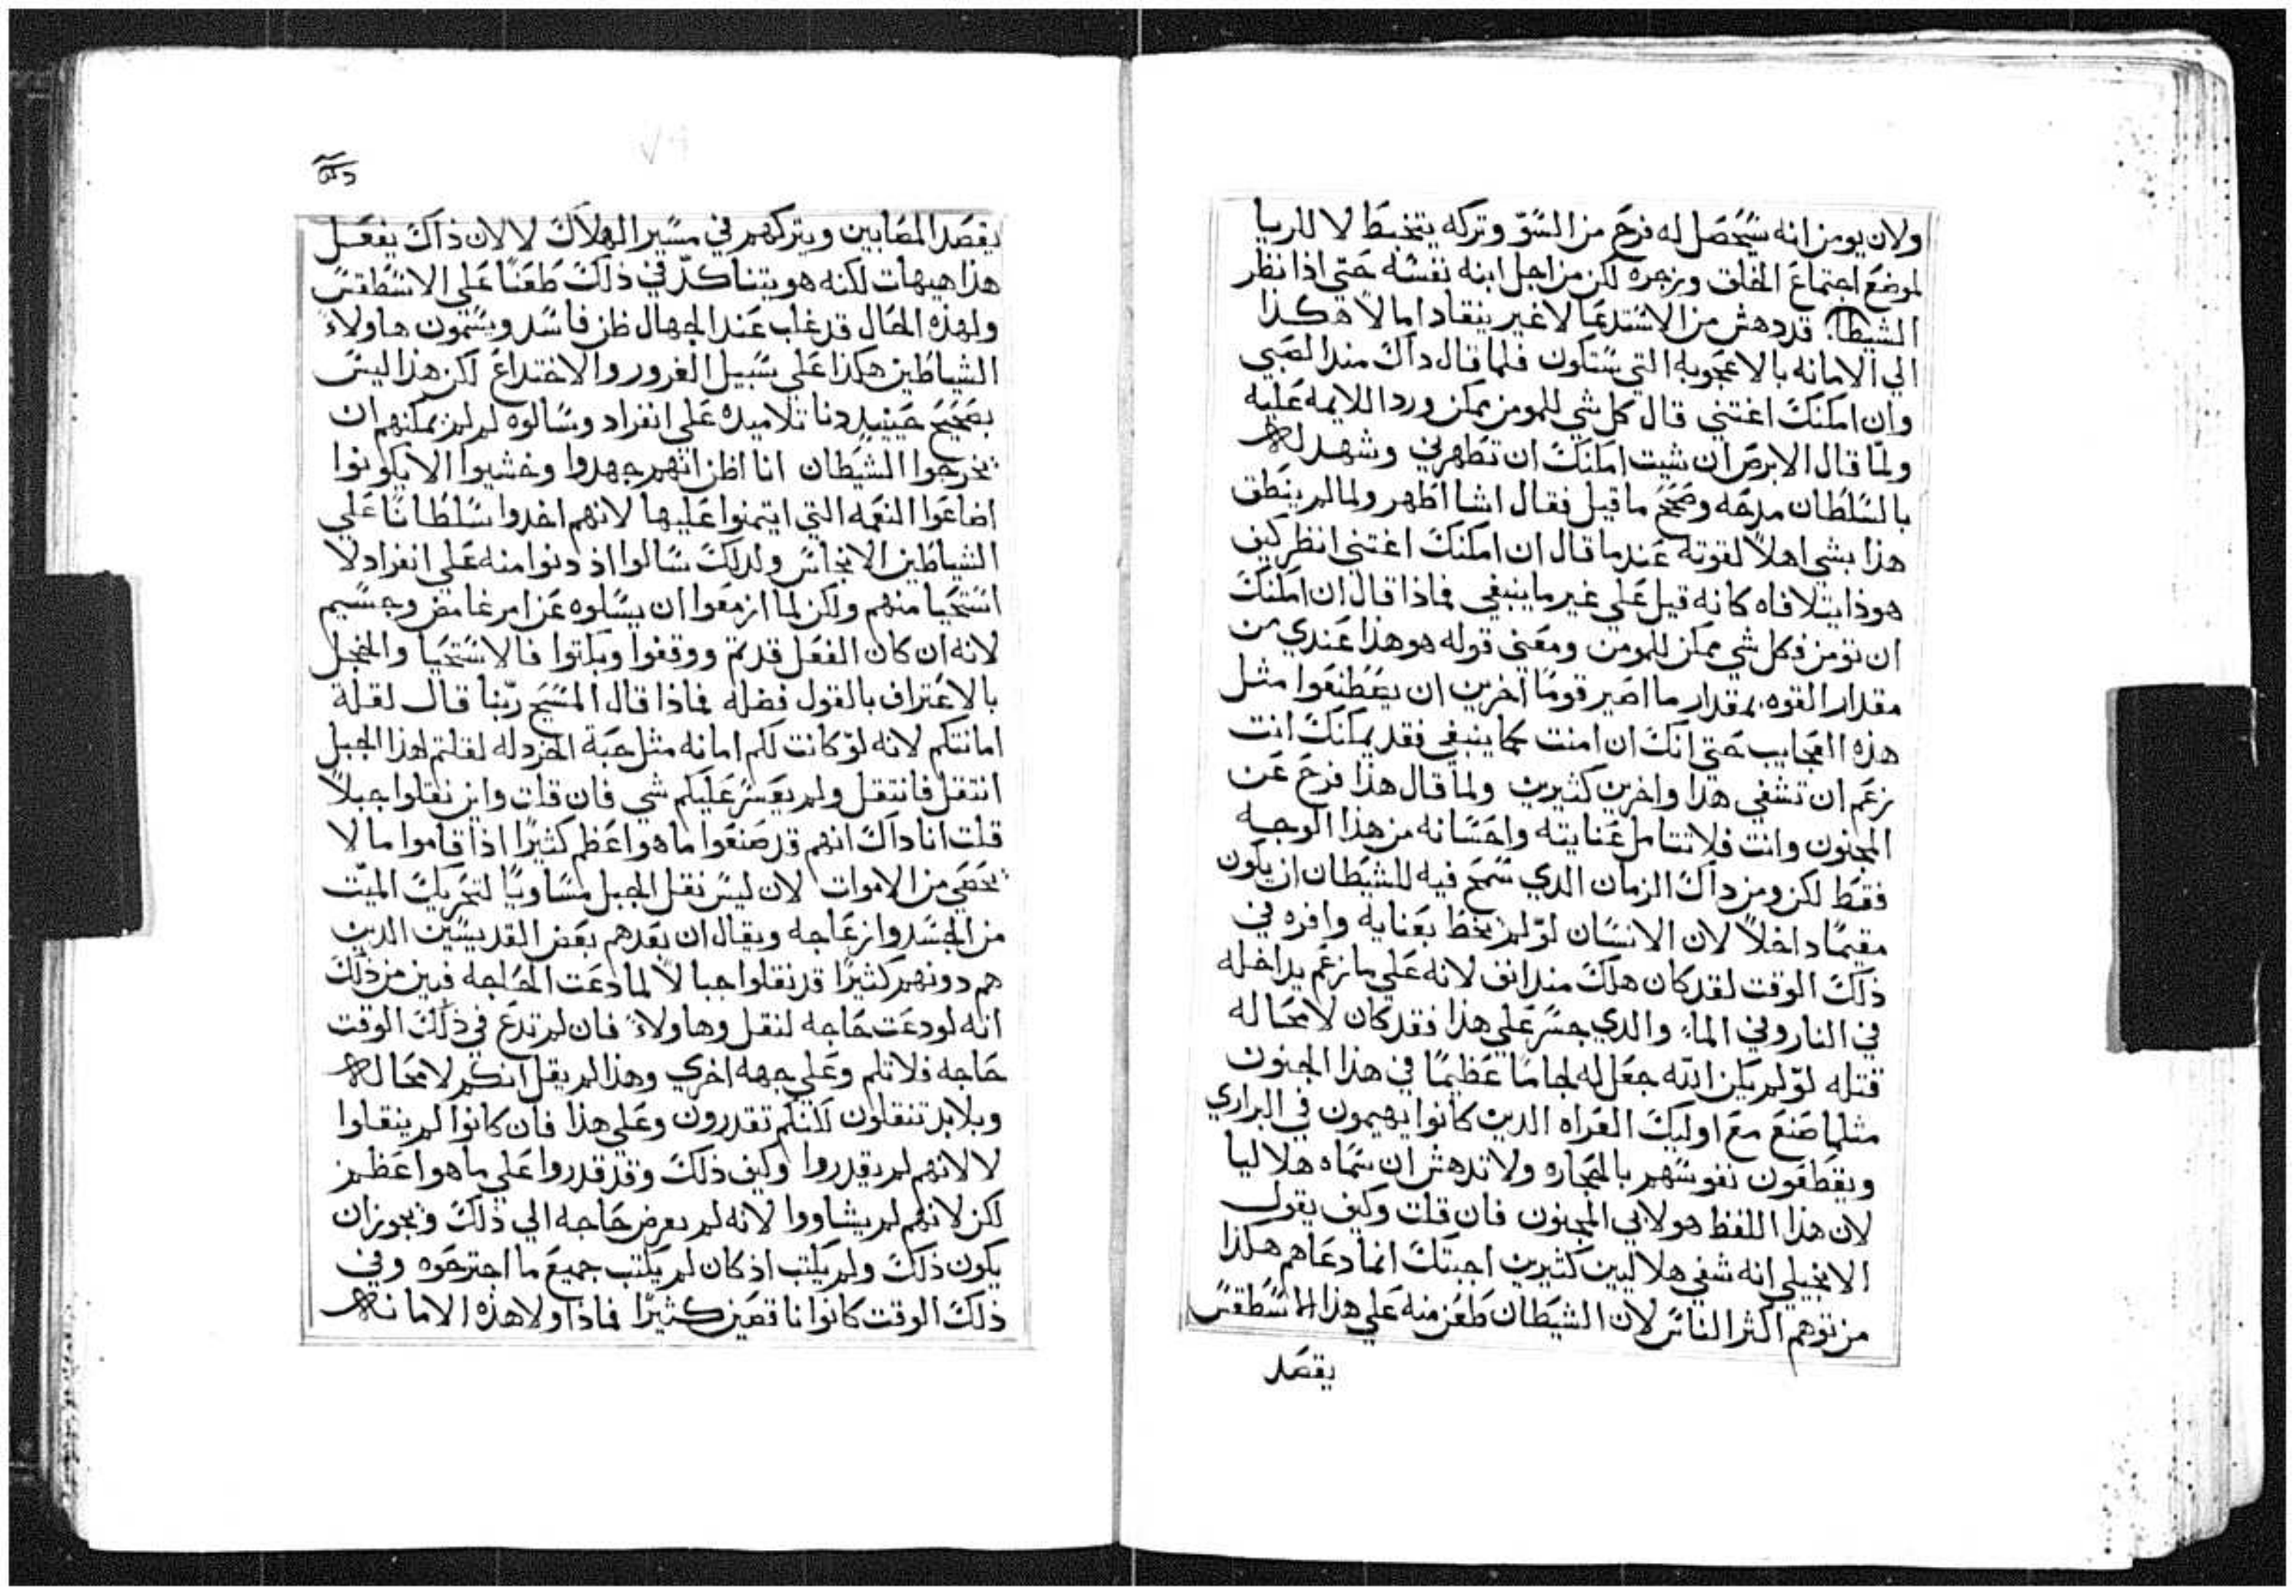 ولان يومن انه سيحصل له فرح من السو وتركه يتخبط لا للريا
لموضع اجتماع الخلق وزجره لكن من اجل ابنه نفسه حتي اذا نظر
الشيطان قد دهش من الاستدعا لا غير ينقاد اما لا هكذا
الي الامانه بالاعجوبه التي ستكون فلما قال داك مند الصبي
وان امكنك اغتني قال كل شي للمومن يمكن وردا اللايمه عليه
ولما قال الابرص ان شيت امكنك ان تطهرني وشهد له
بالسلطان مدحه وصحح ما قيل فقال اشا اطهر ولما لم ينطق
هذا بشي اهلاً لقوته عندما قال ان امكنك اغتني انظر كيف
هوذا يتلافاه كانه قيل علي غير ما ينبغي فماذا قال ان امكنك
ان تومن فكل شي ممكن للمومن ومعني قوله هو هذا عندي من
مقدار القوه بمقدار ما اصير قوماً اخرين ان يصطنعوا مثل
هذه العجايب حتي انك ان امنت كما ينبغي فقد يمكنك انت
زعم ان تشفي هذا واخرين كثيرين ولما قال هذا فرح عن
المجنون وانت فلا تتامل عنايته واحسانه من هذا الوجه
فقط لكن ومن داك الزمان الدي سمح فيه للشيطان ان يكون
مقيماً داخلاً لان الانسان لو لم يحظ بعنايه وافره في
ذلك الوقت لقد كان هلك مند انف لانه علي ما زعم يداخله
في النار وفي الماء والدي جسر علي هذا فقد كان لا محاله
قتله لو لم يكن الله جعل له لجاماً عظيماً في هذا الجنون
مثلما صنع مع اوليك العراه الدين كانوا يهيمون في البراري
ويقطعون نفوسهم بالحجاره ولا تدهش ان سماه هلاليا
لان هذا اللفظ هو لابي المجنون فان قلت وكيف يقول
الانجيلي انه شفي هلاليين كثيرين اجبتك انما دعاهم هكذا
من توهم اكثر الناس لان الشيطان طعن منه علي هذا الاسطقس
يقصد
يقصد المصابين ويتركهم في مسير الهلاك لا لان ذاك يفعل
هذا هيهات لكنه هو يتناكد في ذلك طعناً علي الاسطقس
ولهذه الحال قد غلب عند الجهال ظن فاسد ويسمون هاولاء
الشياطين هكذا علي سبيل الغرور والاختداع لكن هذا ليس
بصحيح حينيد دنا تلاميده علي انفراد وسالوه لم لم يمكنهم ان
يخرجوا الشيطان انا اظن انهم جهدوا وخشيوا الا يكونوا
اضاعوا النعمه التي ايتمنوا عليها لانهم اخدوا سلطاناً علي
الشياطين الانجاس ولدلك سالوا اذ دنوا منه علي انفراد لا
استحيا منهم ولكن لما ازمعوا ان يسلوه عن امر غامض وجسيم
لانه ان كان الفعل قد تم ووقفوا وبكتوا فالاستحيا والخجل
بالاعتراف بالقول فضله فماذا قال المسيح ربنا قال لقلة
امانتكم لانه لو كانت لكم امانه مثل حبة الخردله لقلتم لهذا الجبل
انتقل فانتقل ولم يعسر عليكم شي فان قلت واين نقلوا جبلاً
قلت انا داك انهم قد صنعوا ما هو اعظم كثيراً اذا قاموا ما لا
يحصي من الاموات لان ليس نقل الجبل مساوياً لتحريك الميت
من الجسد وازعاجه ويقال ان بعدهم بعض القديسين الدين
هم دونهم كثيراً قد نقلوا جبالاً لما دعت الحاجه فبين من ذلك
انه لو دعت حاجه لنقل وهاولاء فان لم تدع في ذلك الوقت
حاجه فلا تلم وعلي جهه اخري وهذا لم يقل انكم لا محاله
وبلا بد تنقلون لكنكم تقدرون وعلي هذا فان كانوا لم ينقلوا
لا لانهم لم يقدروا وكيف ذلك وقد قدروا علي ما هو اعظم
لكن لانهم لم يشاووا لانه لم يعرض حاجه الي ذلك ويجوز ان
يكون ذلك ولم يكتب اذ كان لم يكتب جميع ما اجترحوه وفي
ذلك الوقت كانوا ناقصين كثيراً فماذا ولا هذه الامانه